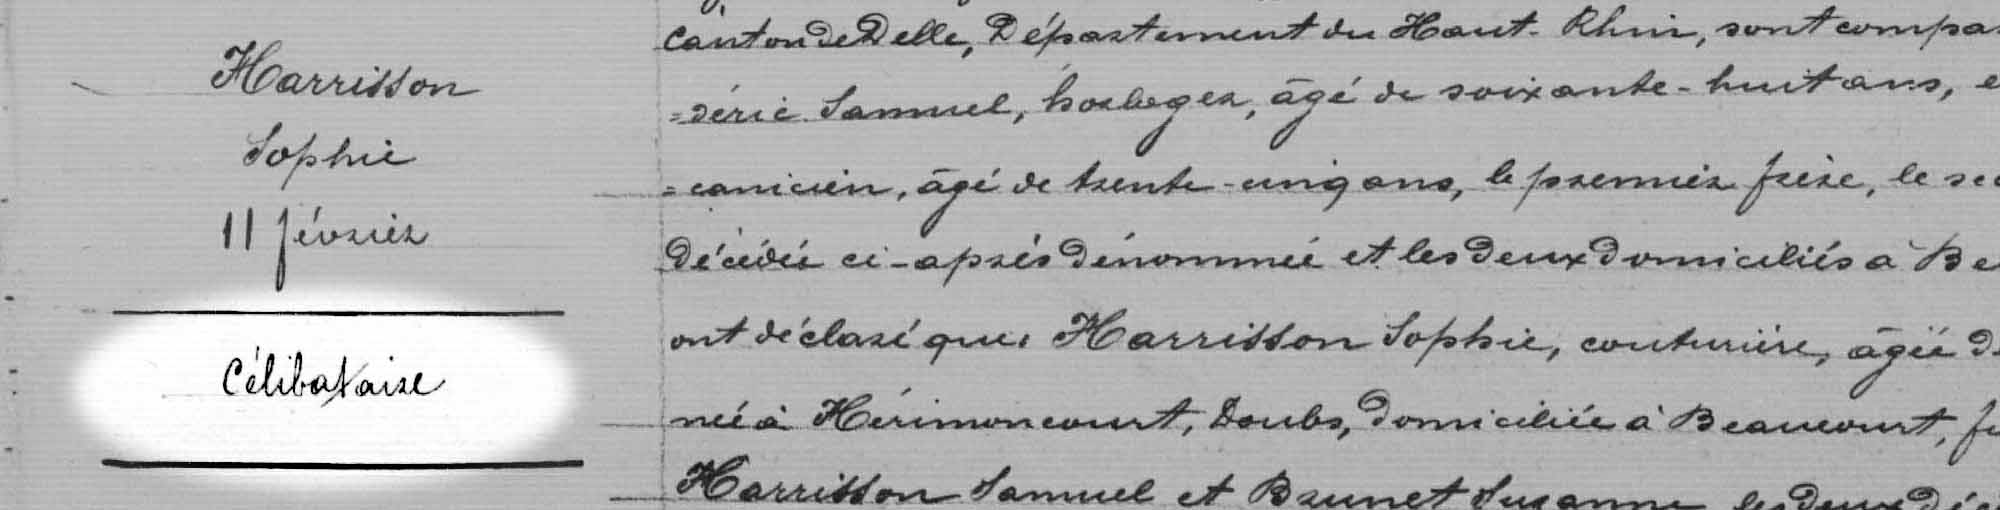 Harrisson
Sophie
11 février
Célibataire
Canton de Delle, Département du Haut-Rhin, sont compa
=déric Samuel, horloger, âgé de soixante-huit ans, e
=canicien, âgé de trente-cinq ans, le premier frère, le sec
décédée ci-après dénommée et les deux domiciliés à Be
ont déclaré que Harrisson Sophie, couturière, âgée d
née à Hérimoncourt, Doubs, domiciliée à Beaucourt, f
Harrisson Samuel et Brunet Suzanne les deux décé